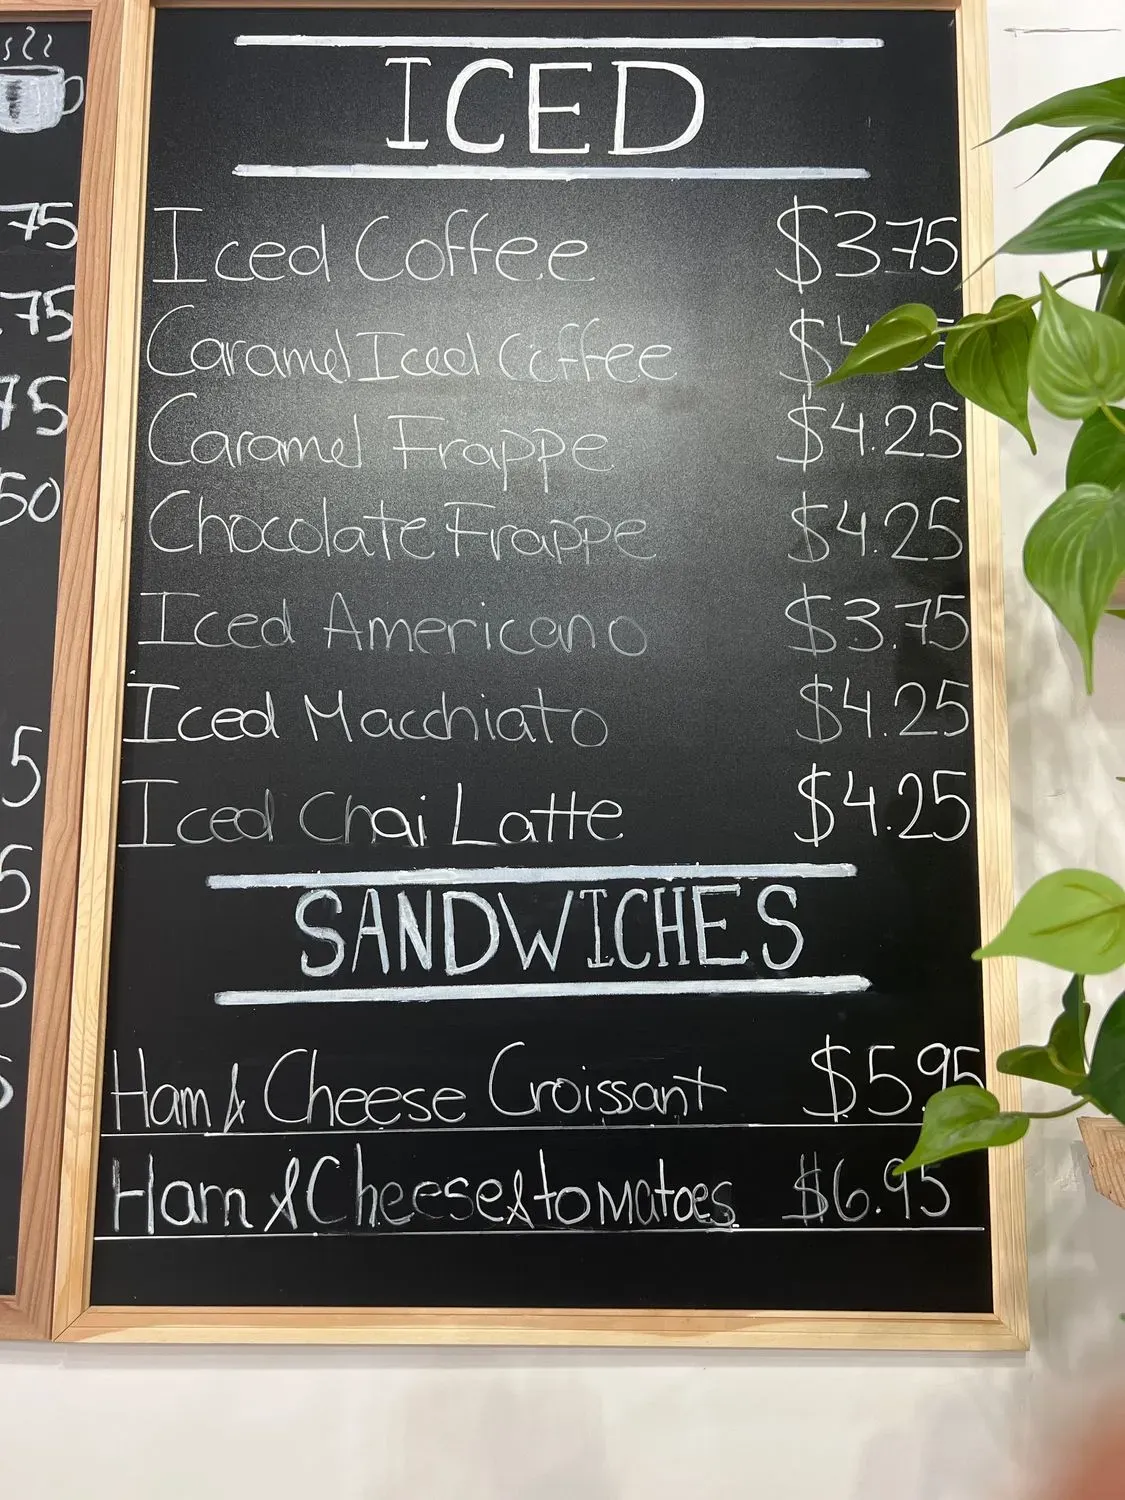 ICED
Iced Coffee $3.75
Caramel Iced Coffee
Caramel Frappe $4.25
Chocolate Frappe $4.25
Iced Americano $3.75
Iced Macchiato $4.25
Iced Chai Latte $4.25
SANDWICHES
Ham & Cheese Croissant $5.95
Ham & Cheese & tomatoes $6.95
75
.75
75
50
5
5
5
5